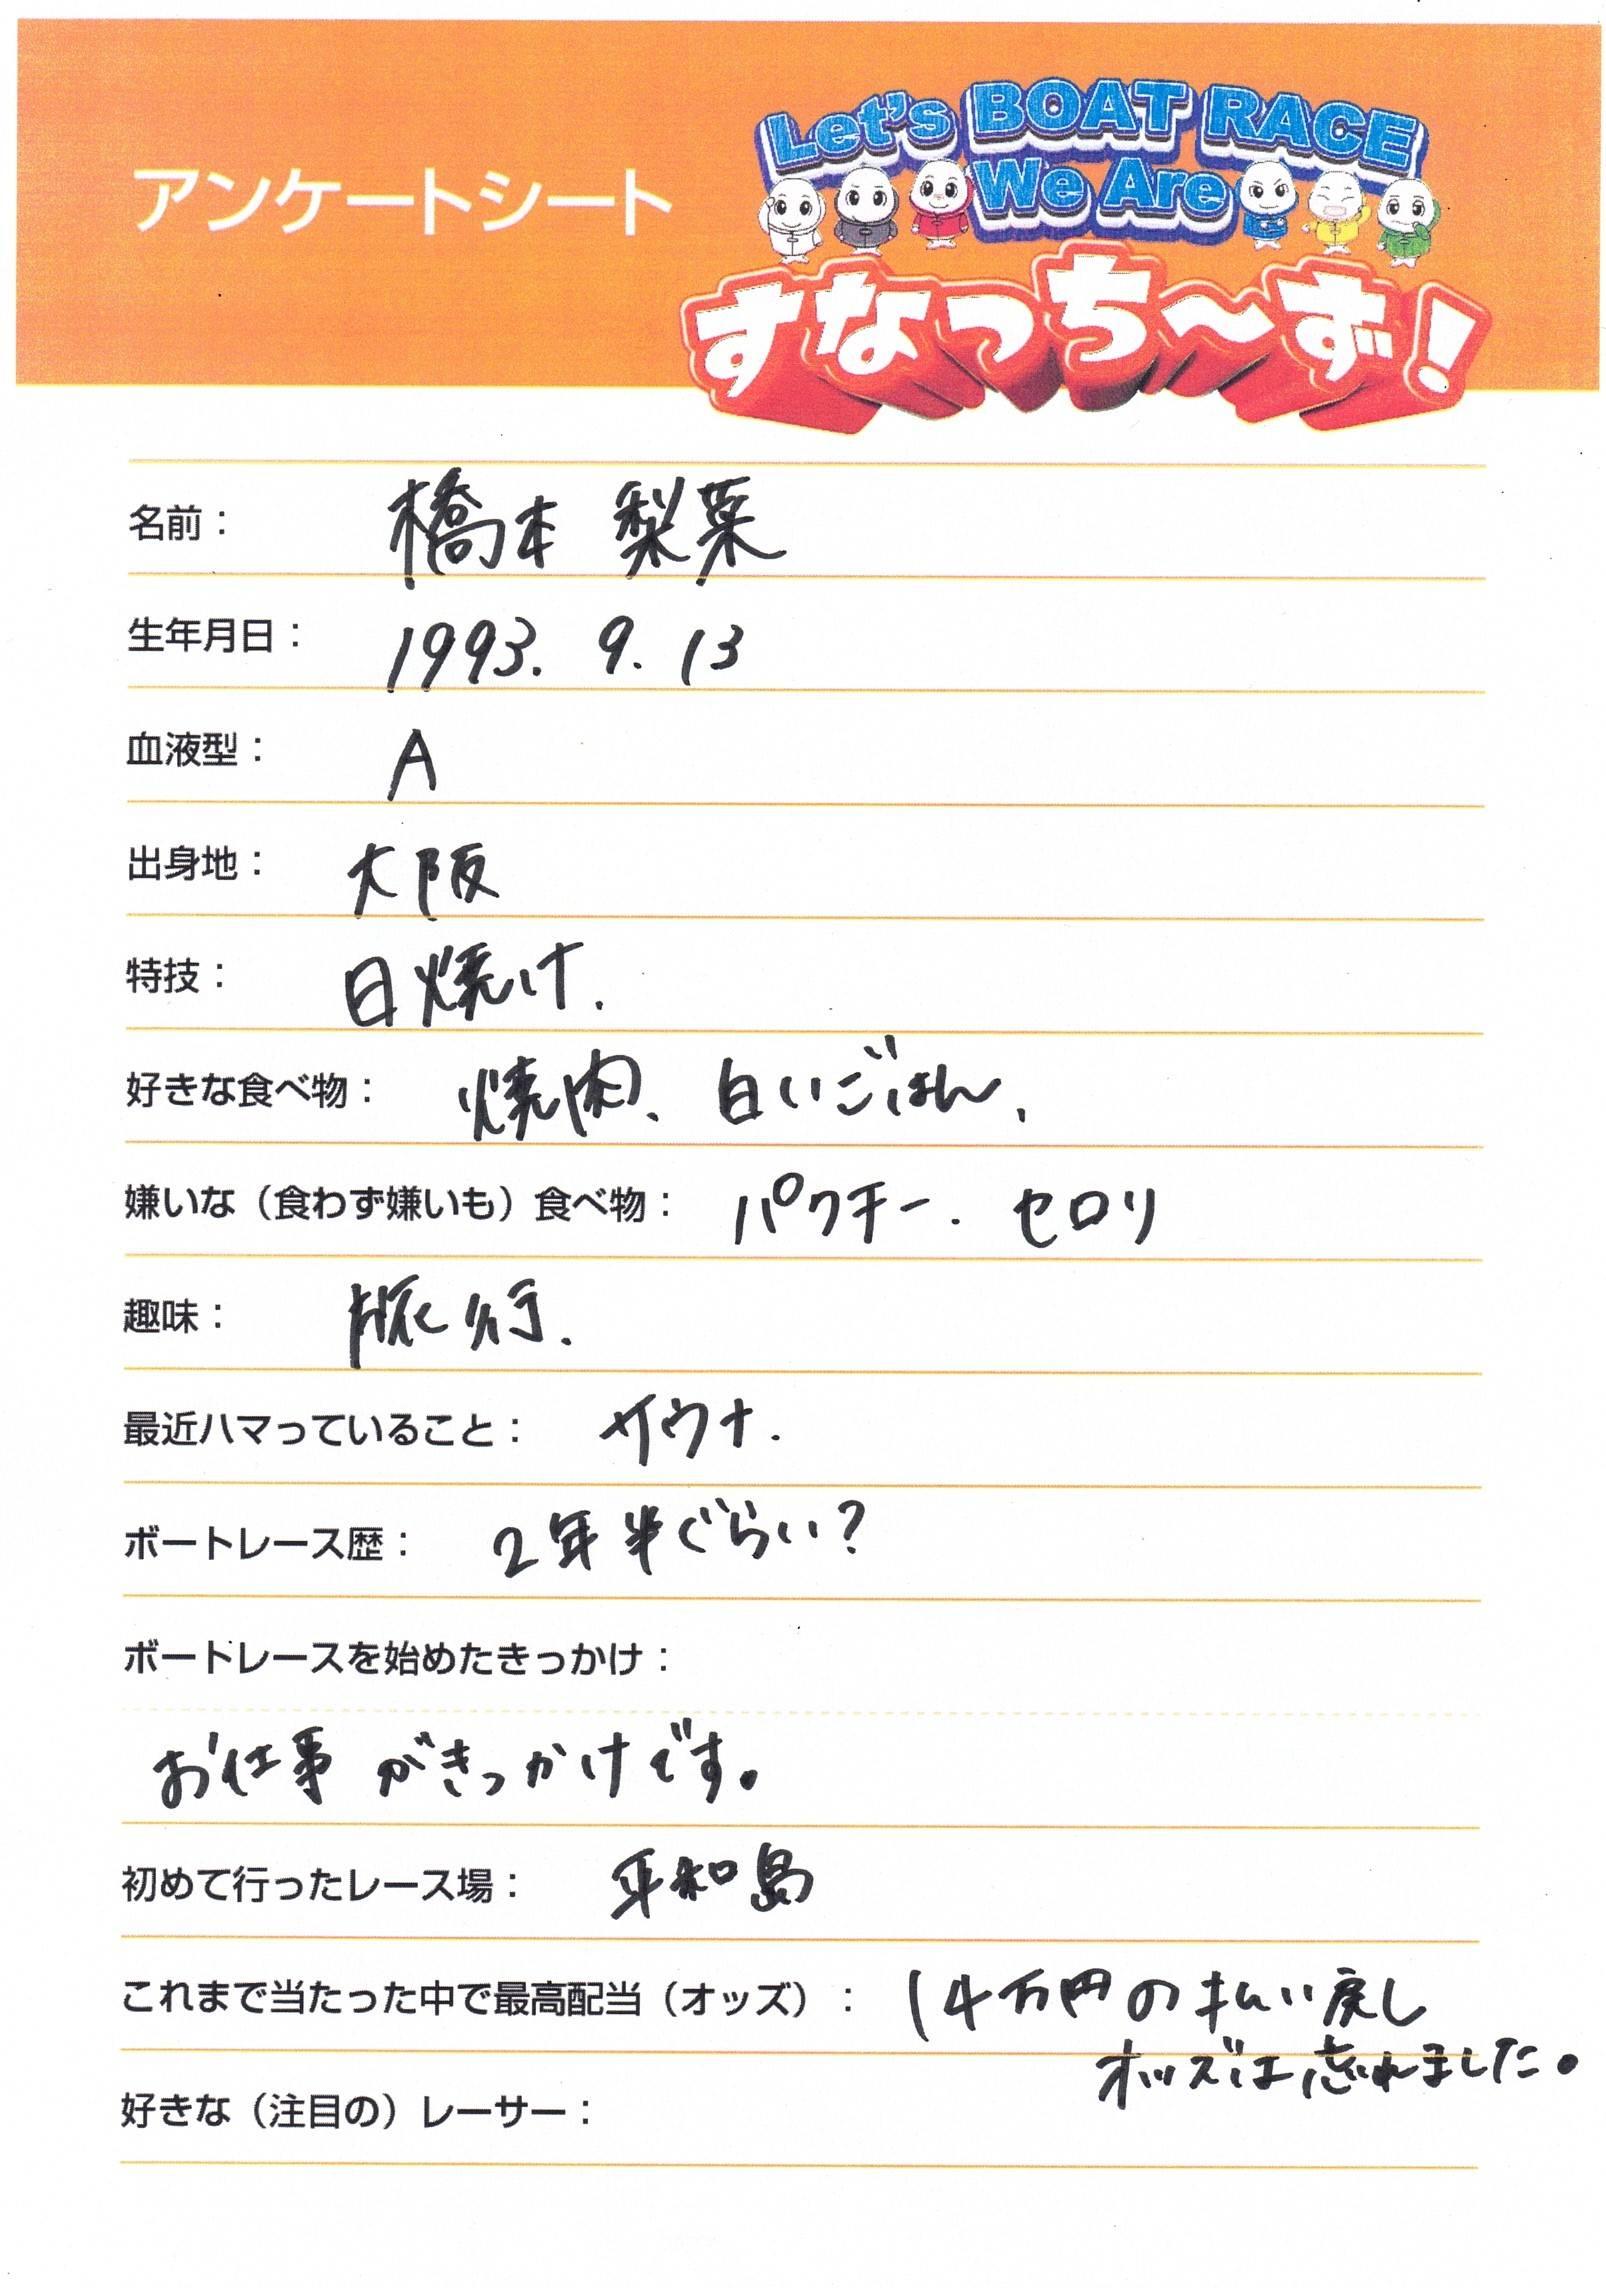 アンケートシート
Let's BOAT RACE
We Are
すなっち〜ず！
名前： 橋本 梨菜
生年月日： 1993. 9. 13
血液型： A
出身地： 大阪
特技： 日焼け.
好きな食べ物： 焼肉、白いごはん、
嫌いな（食わず嫌いも）食べ物： パクチー. セロリ
趣味： 旅行.
最近ハマっていること： サウナ.
ボートレース歴： 2年半ぐらい？
ボートレースを始めたきっかけ：
お仕事がきっかけです。
初めて行ったレース場： 平和島
これまで当たった中で最高配当（オッズ）： 14万円の払い戻し
オッズは忘れました。
好きな（注目の）レーサー：